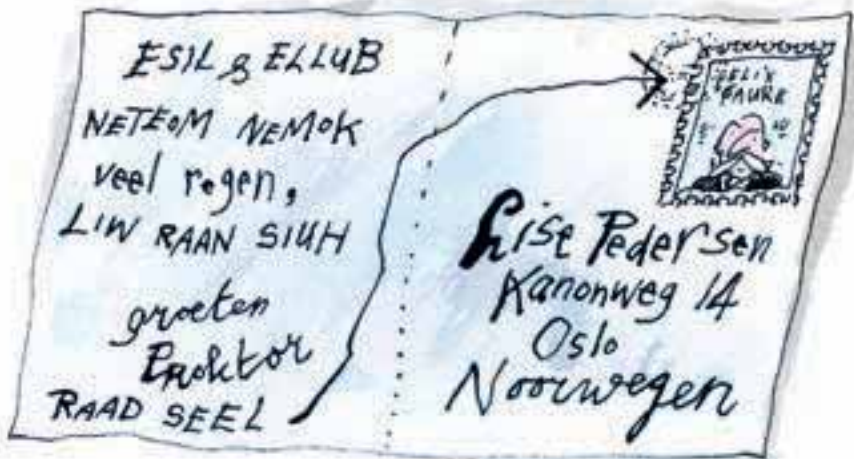 ESIL & ELLUB
NETEOM NEMOK
veel regen,
LIW RAAN SIUH
groeten
Proktor
RAAD SEEL
FELIX
FAURE
Lise Pedersen
Kanonweg 14
Oslo
Noorwegen